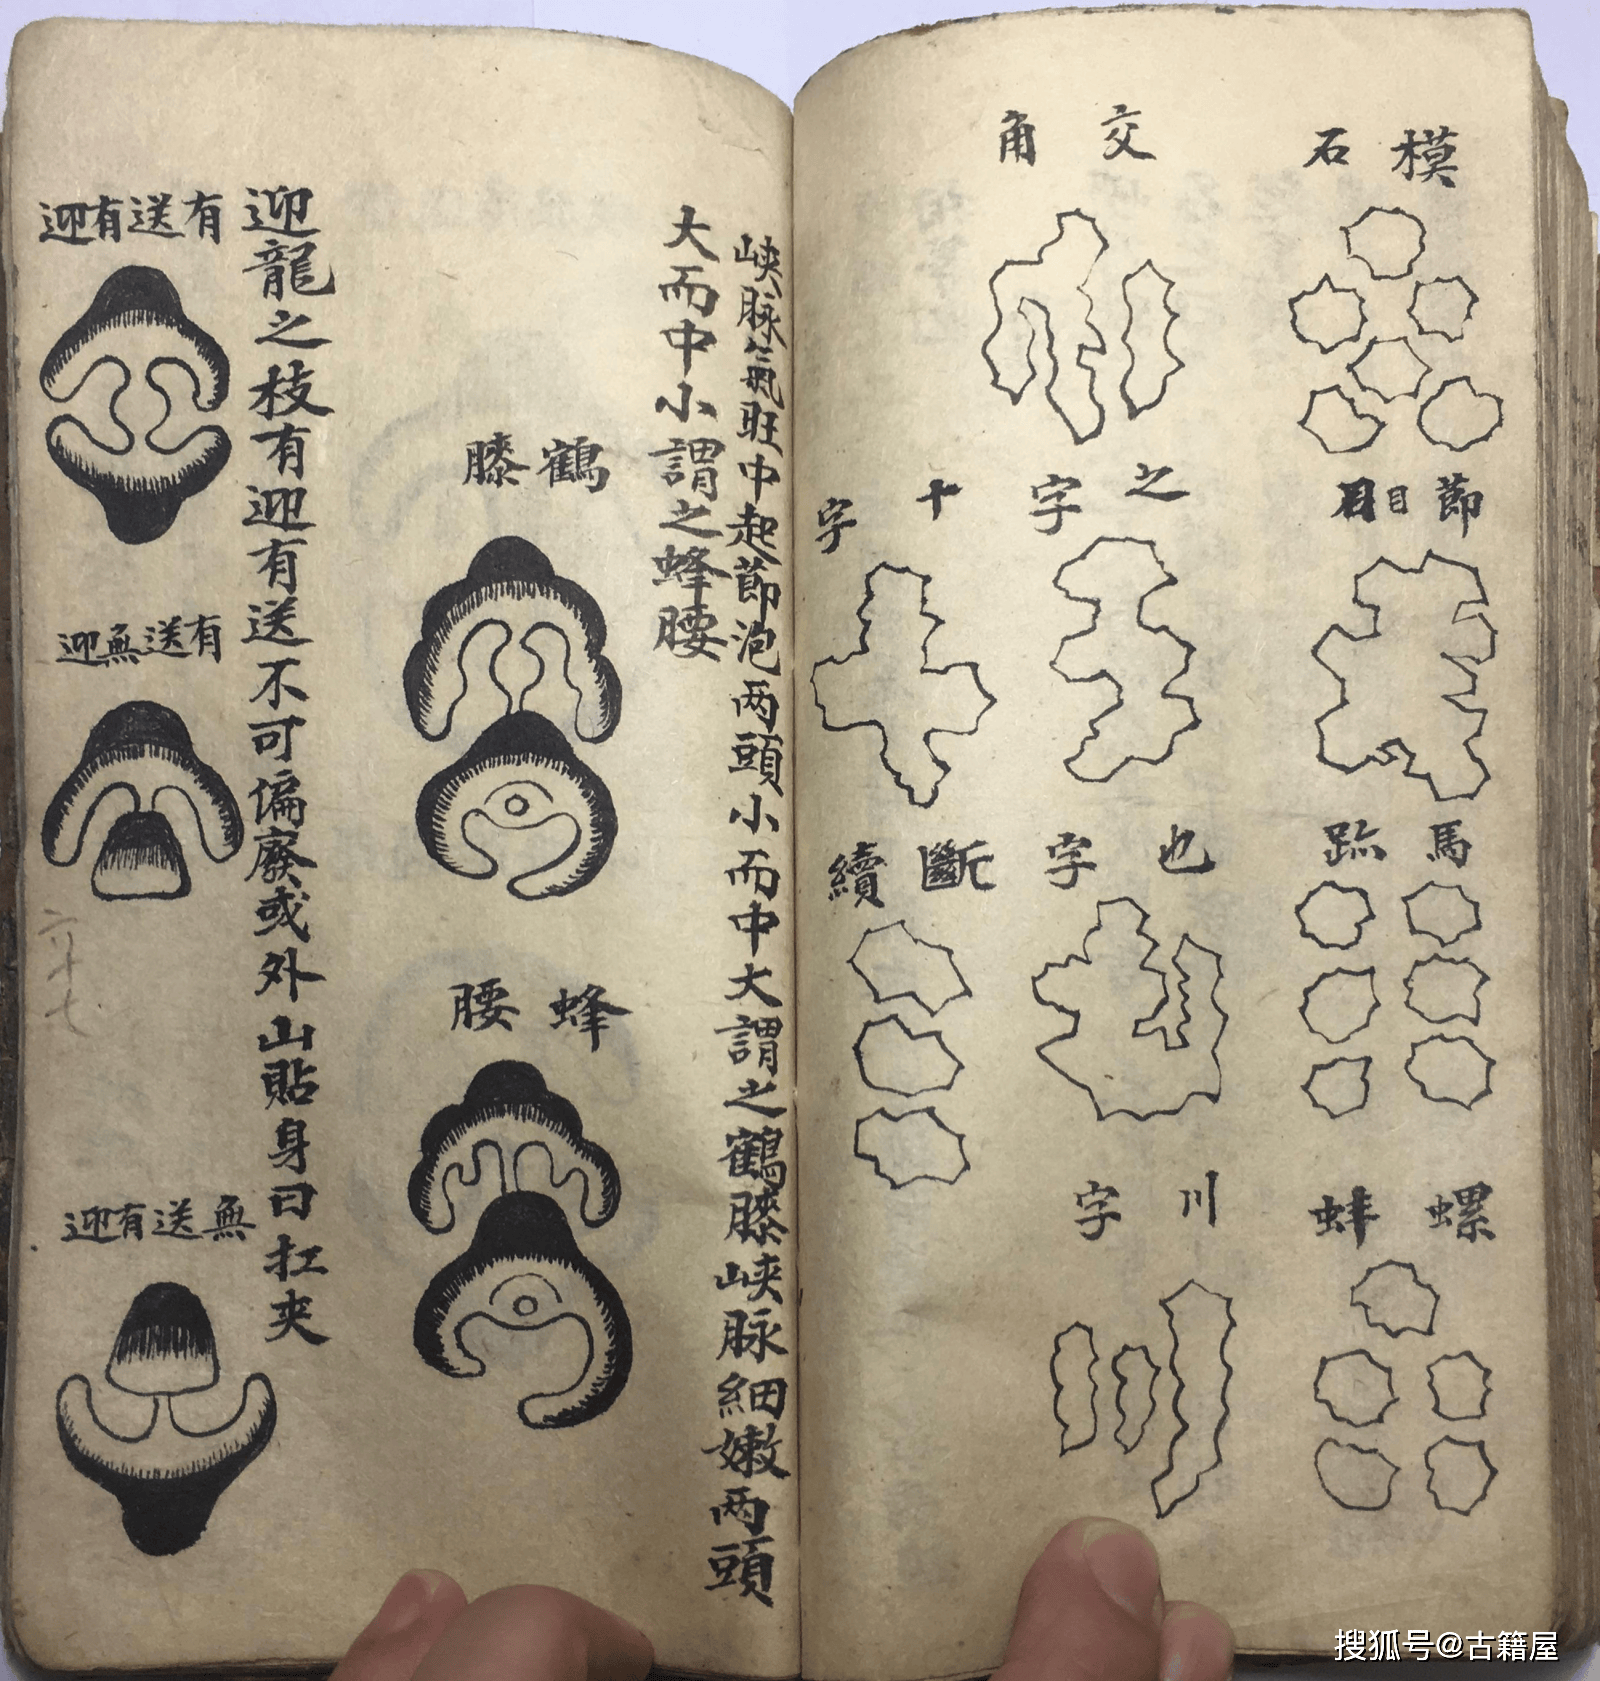 模石
節目
馬跡
螺蚌
交角
之字
也字
川字
十字
斷續
峡脉氣旺中起節泡两頭小而中大謂之鶴膝峡脉細嫩两頭
大而中小謂之蜂腰
鶴膝
蜂腰
迎龍之枝有迎有送不可偏廢或外山貼身曰扛夾
有送有迎
有送無迎
無送有迎
六十七
搜狐号@古籍屋